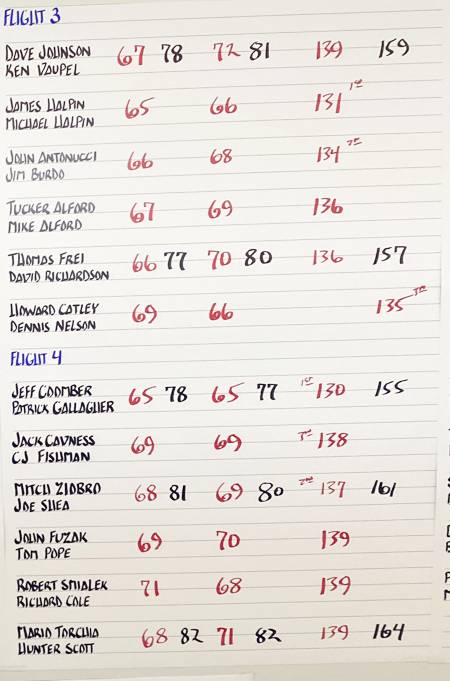 FLIGHT 3
DAVE JOHNSON 67 78 72 81 139 159
KEN VAUPEL
JAMES HALPIN 65 66 131 1ST
MICHAEL HALPIN
JOHN ANTONUCCI 66 68 134 2ND
JIM BURDO
TUCKER ALFORD 67 69 136
MIKE ALFORD
THOMAS FREI 66 77 70 80 136 157
DAVID RICHARDSON
HOWARD COTLEY 69 66 135 3RD
DENNIS NELSON
FLIGHT 4
JEFF COOMBER 65 78 65 77 1ST 130 155
PATRICK GALLAGHER
JACK CAVNESS 69 69 138
CJ FISHMAN
MITCH ZIOBRO 68 81 69 80 2ND 137 161
JOE SHEA
JOHN FUZAK 69 70 139
TOM POPE
ROBERT SMIALEK 71 68 139
RICHARD COLE
MARIO TORCHIA 68 82 71 82 139 164
HUNTER SCOTT